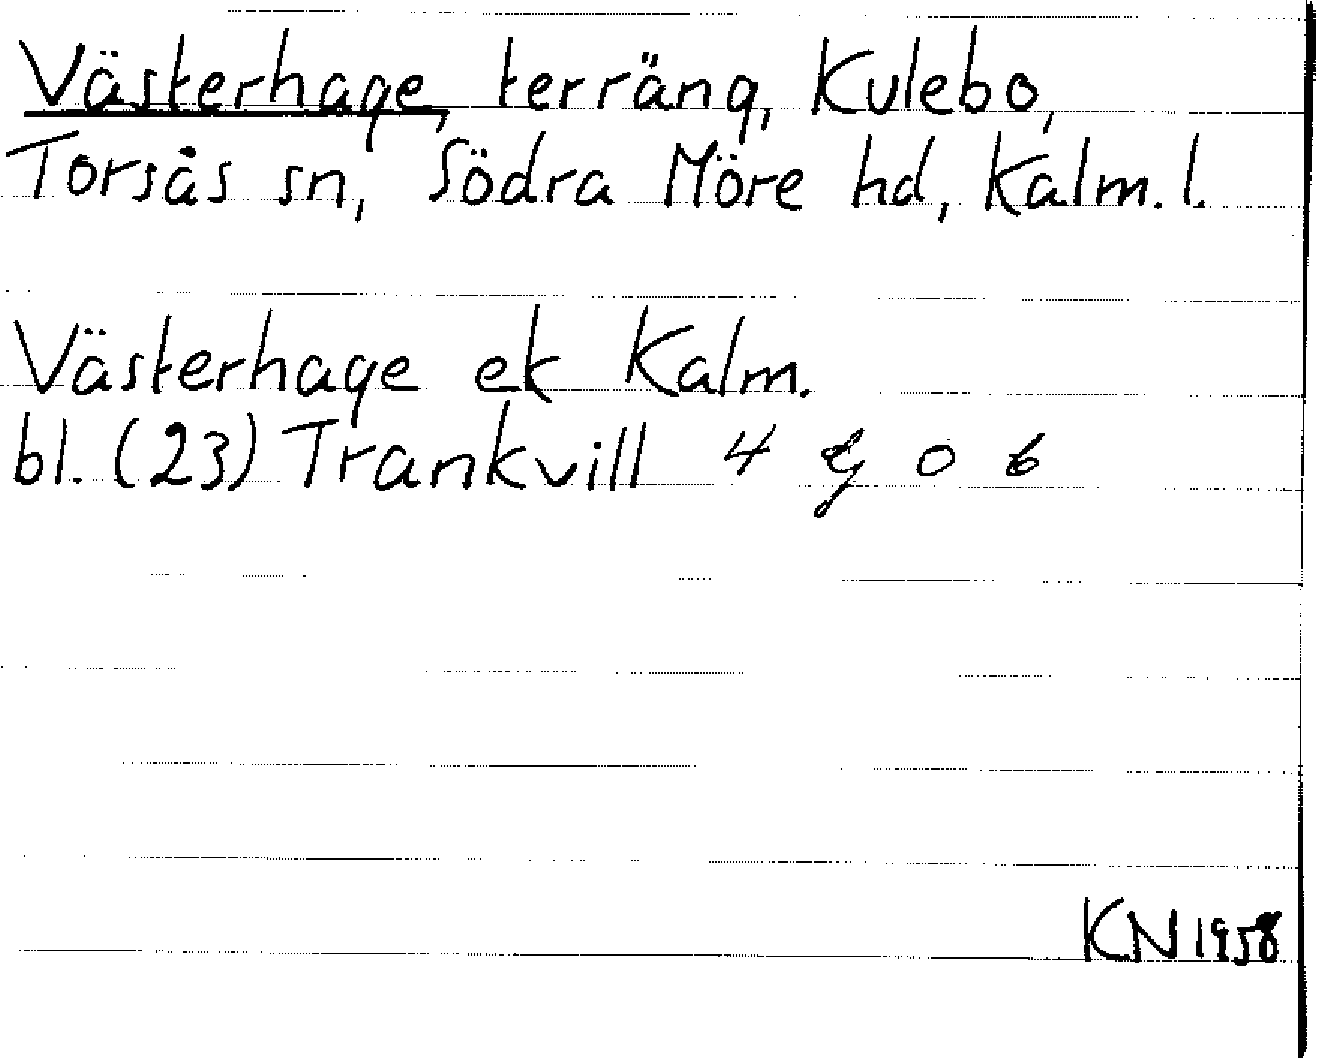 Västerhage, terräng, Kulebo,
Torsås sn, Södra Möre hd, Kalm. l.
Västerhage ek Kalm.
bl. (23) Trankvill 4 g 0 b
KN 1958